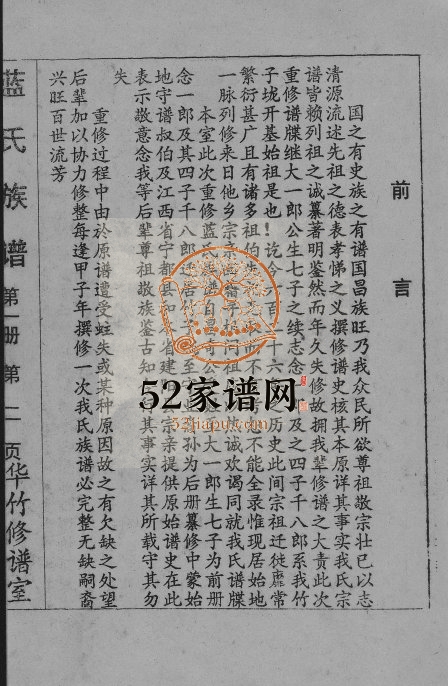 前言
国之有史族之有谱国昌族旺乃我众民所欲尊祖敬宗壮已以志
清源流述先祖之德表孝悌之义撰修谱史核其本原详其事实我氏宗
谱皆赖列祖之诚纂著明鉴然而年久失修故拥我辈修谱之大责此次
重修谱牒继大一郎公生七子之续志念一及之四子千八郎系我竹
子垅开基始祖是也！迄今百十六历史此间宗祖迁徙靡常
繁衍甚广且有诸多祖伯失不能全录惟现居始地
一脉列修来日他乡宗亲诚欢谒同就我氏谱牒
本室此次重修蓝氏族谱自昌奇公大一郎生七子为前册
念一郎及其四子千八郎至孙为后册纂修中蒙始
地守谱叔伯及江西省宁都县和省建宗亲提供原始谱史在此
表示敬意念我等后辈尊祖敬族鉴古知其事实详其所载守其勿
失
重修过程中由於原谱遭受蛀失或某种原因故之有欠缺之处望
后辈加以协力修整每逢甲子年撰修一次我氏族谱必完整无缺嗣裔
兴旺百世流芳
蓝氏族谱 第一册 第二页 华竹修谱室
52家谱网
52jiapu.com